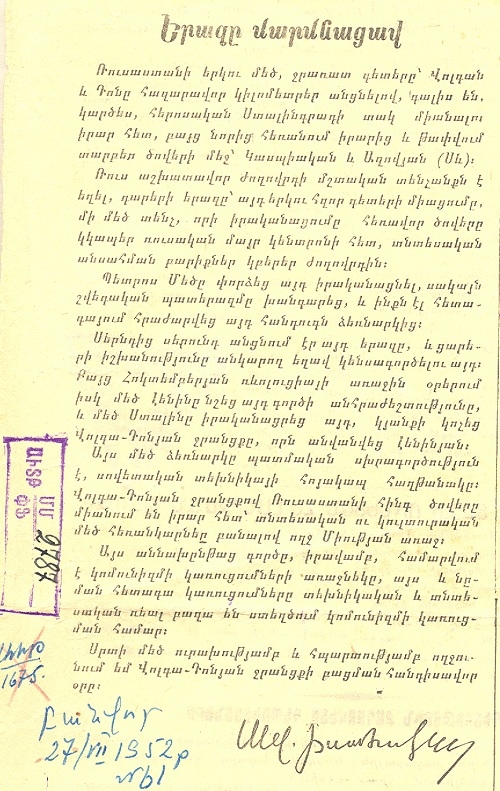 Երազը մարմնացավ
Ռուսաստանի երկու մեծ, ջրառատ գետերը՝ Վոլգան
և Դոնը հազարավոր կիլոմետրեր անցնելով, գալիս են,
կարծես, հերոսական Ստալինգրադի տակ միանալու
իրար հետ, բայց նորից հեռանում իրարից և թափվում
տարբեր ծովերի մեջ՝ Կասպիական և Ազովյան (Սև)։
Ռուս աշխատավոր ժողովրդի մշտական տենչանքն է
եղել, դարերի երազը՝ այդ երկու հզոր գետերի միացումը,
մի մեծ տենչ, որի իրականացումը հեռավոր ծովերը
կկապեր ռուսական մայր կենտրոնի հետ, տնտեսական
անսահման բարիքներ կբերեր ժողովրդին։
Պետրոս Մեծը փորձեց այդ իրականացնել, սակայն
շվեդական պատերազմը խանգարեց, և ինքն էլ հետա-
գայում հրաժարվեց այդ հանդուգն ձեռնարկից։
Սերնդից սերունդ անցնում էր այդ երազը, և ցարե-
րի իշխանությունը անկարող եղավ կենսագործելու այդ։
Բայց Հոկտեմբերյան ռևոլուցիայի առաջին օրերում
իսկ մեծ Լենինը նշեց այդ գործի անհրաժեշտությունը,
և մեծ Ստալինը իրականացրեց այդ, կյանքի կոչեց
Վոլգա-Դոնյան ջրանցքը, որն անվանվեց Լենինյան։
Այս մեծ ձեռնարկը պատմական սխրագործություն
է, սովետական տեխնիկայի հոյակապ հաղթանակը։
Վոլգա-Դոնյան ջրանցքով Ռուսաստանի հինգ ծովերը
միանում են իրար հետ՝ տնտեսական ու կուլտուրական
մեծ հեռանկարներ բանալով ողջ Միության առաջ։
Այս աննախընթաց գործը, իրավամբ, համարվում
է կոմունիզմի կառուցումների առաջնեկը, այս և նը-
ման հետագա կառուցումները տեխնիկական և տնտե-
սական ռեալ բազա են ստեղծում կոմունիզմի կառուց-
ման համար։
Սրտի մեծ ուրախությամբ և հպարտությամբ ողջու-
նում եմ Վոլգա-Դոնյան ջրանցքի բացման հանդիսավոր
օրը։
Ավ. Իսահակյան
բանվոր
27/VII 1952թ
№61
ԱԻՏԹ ՄՄ
ՓՑ 2787
1675.